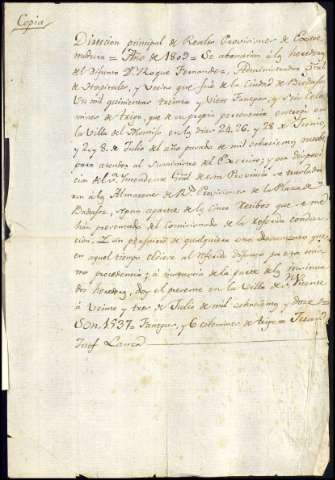 Copia
Direccion principal de Reales Provisiones de Extre-
madura = Año de 1809 = Se abonarán á los herederos
del difunto Dn. Roque Fernandez, Administrador
de Hospitales, y vecino que fué de la Ciudad de Badajoz
Un mil quinientas treinta y siete fanegas, y seis cele-
mines de trigo, que de su propia pertenencia entregó en
la Villa del Montijo en los dias 24, 26, y 28 de Junio,
y 2, y 8 de Julio del año pasado de mil ochocientos nueve
para atender al suministro del Exercito; y por disposi-
cion del Sr. Intend.te Gral de esta Provincia se trasladaron
á los Almacenes de Rs. Provisiones de la Plaza de
Badajoz, segun aparece de los cinco recibos que se me
han presentado del Comisionado de la referida conduc-
cion. Y sin perjuicio de qualquiera otro documento que
en aquel tiempo se diese al referido difunto por esta mis-
ma procedencia; á instancia de la parte de los
herederos, doy el presente en la Villa de Sn. Vicente
á veinte y tres de Julio de mil ochocientos y doce
Son 1537 fanegas, y 6 celemines de trigo =
Josef Lanza